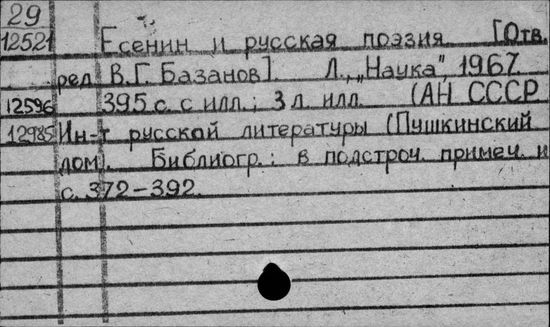 29
12521 Есенин и русская поэзия. [Отв.
ред. В.Г. Базанов]. Л., „Наука", 1967.
12596 395 с. с илл.; 3 л. илл. (АН СССР
12985 Ин-т русской литературы (Пушкинский
дом). Библиогр.: в подстроч. примеч. и
с. 372-392.